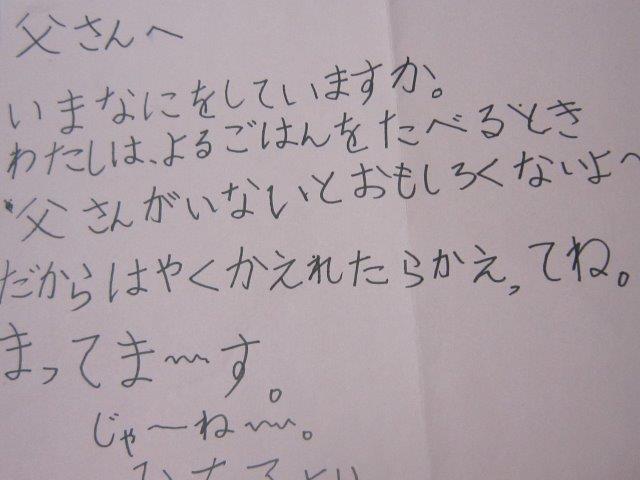 父さんへ
いまなにをしていますか。
わたしは、よるごはんをたべるとき
父さんがいないとおもしろくないよ〜
だからはやくかえれたらかえってね。
まってま〜〜す。
じゃーね〜〜。